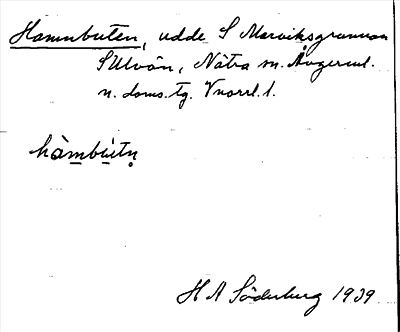 Hamnbuten, udde S Marviksgrunnan
S Ulvön, Nätra sn. Ångerml.
n. doms. tg. Vnorrl. l.
hàmbùtn̥
H A Söderberg 1939